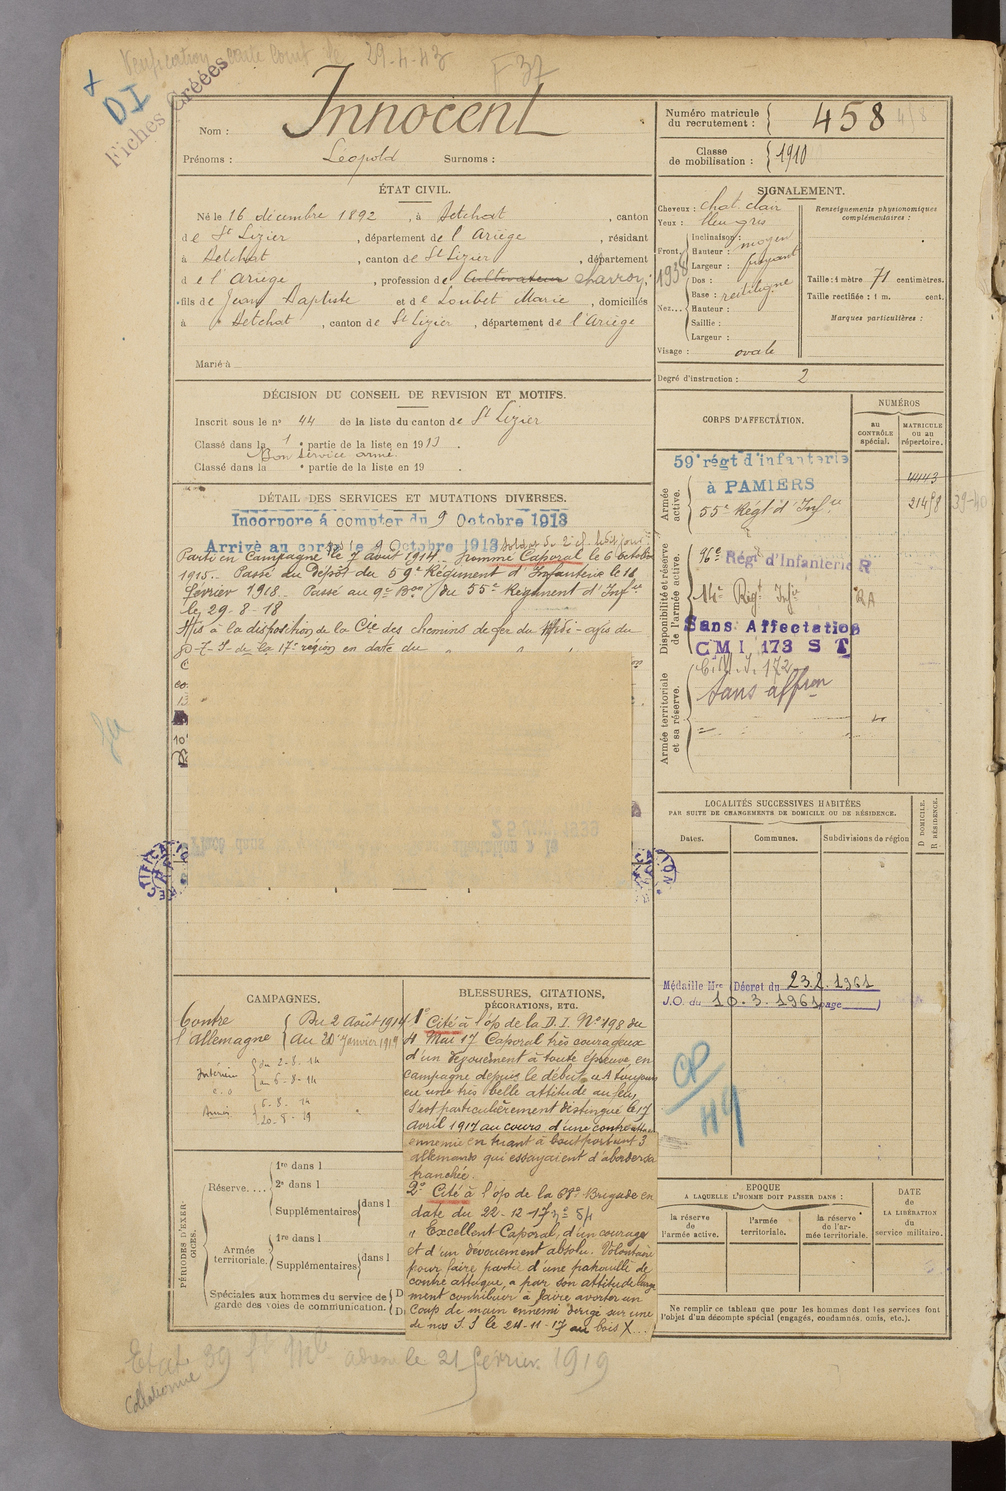 29-4-43
F 37
+
DI
Fiches Créées
Nom : Innocent
Prénoms : Léopold Surnoms :
Numéro matricule du recrutement : 458
Classe de mobilisation : 1910
ÉTAT CIVIL.
Né le 16 décembre 1892, à Betchat, canton
de St Lizier, département de l'Ariège, résidant
à Betchat, canton de St Lizier, département
de l'Ariège, profession de Cultivateur
fils de Jean Baptiste et de Loubet Marie, domiciliés
à Betchat, canton de St Lizier, département de l'Ariège
Marié à
SIGNALEMENT.
Cheveux : chat. clair
Yeux : bleu gris
Front. Inclinaison : moyen
Hauteur :
Largeur : fuyant
1938
Nez... Dos :
Base : rectiligne
Hauteur :
Saillie :
Largeur :
Visage : ovale
Renseignements physionomiques complémentaires :
Taille : 1 mètre 71 centimètres.
Taille rectifiée : 1 m. cent.
Marques particulières :
Degré d'instruction : 2
DÉCISION DU CONSEIL DE REVISION ET MOTIFS.
Inscrit sous le n° 44 de la liste du canton de St Lizier
Classé dans la 1e partie de la liste en 1913.
Bon service armé.
Classé dans la e partie de la liste en 19
DÉTAIL DES SERVICES ET MUTATIONS DIVERSES.
Incorporé à compter du 9 Octobre 1913
Arrivé au corps le 9 Octobre 1913 soldat de 2e cl.
Parti en Campagne le 7 août 1914. Nommé Caporal le 6 octobre
1915. Passé au Dépôt du 59e Régiment d'Infanterie le 18
février 1918. Passé au 9e Bon du 55e Régiment d'Infie
le 29-8-18
Mis à la disposition de la Cie des chemins de fer du Midi
de la 17e région en date du
CORPS D'AFFECTATION.
NUMÉROS
AU CONTRÔLE spécial.
MATRICULE OU AU répertoire.
Armée active.
59e régt d'infanterie
à PAMIERS
4443
55e Régt d'Infie
21498
39-40
Disponibilité et réserve de l'armée active.
96e Régt d'Infanterie R
14e Régt Infie RA
Sans Affectation
CMI 173 ST
Armée territoriale et sa réserve.
C.M.I. 172
Sans affon
LOCALITÉS SUCCESSIVES HABITÉES
PAR SUITE DE CHANGEMENTS DE DOMICILE OU DE RÉSIDENCE.
Dates. Communes. Subdivisions de région
D DOMICILE. R RÉSIDENCE.
Médaille Mre (Décret du 23.2.1961
J.O. du 10.3.1961 page )
CAMPAGNES.
Contre l'Allemagne { Du 2 Août 1914
au 20 Janvier 1919
Intérieur { du 2-8-14
au 5-8-14
Armées { 6-8-14
BLESSURES, CITATIONS,
DÉCORATIONS, ETC.
1° Cité à l'op de la D.I. N° 198 du
4 Mai 17 Caporal très courageux
d'un dévouement à toute épreuve, en
campagne depuis le début. A toujours
eu une très belle attitude au feu,
s'est particulièrement distingué le 17
avril 1917 au cours d'une contre
ennemie en tuant à bout portant 3
allemands qui essayaient d'aborder sa
tranchée.
2° Cité à l'op de la 68e Brigade en
date du 22-12-17
" Excellent Caporal, d'un courage
et d'un dévouement absolu. Volontaire
pour faire partie d'une patrouille de
contre attaque, a par son attitude
contribuer à faire avorter un
coup de main ennemi dirigé sur une
de nos le 24-11-17 au bois X...
CP/49
PÉRIODES D'EXERCICES.
Réserve.... 1re dans l
2e dans l
Supplémentaires dans l
Armée territoriale. 1re dans l
Supplémentaires dans l
Spéciales aux hommes du service de garde des voies de communication. D
D
EPOQUE
A LAQUELLE L'HOMME DOIT PASSER DANS :
la réserve de l'armée active.
l'armée territoriale.
la réserve de l'armée territoriale.
DATE de LA LIBÉRATION du service militaire.
Ne remplir ce tableau que pour les hommes dont les services font
l'objet d'un décompte spécial (engagés, condamnés, omis, etc.).
Etat 39 le 21 février 1919
Collationné